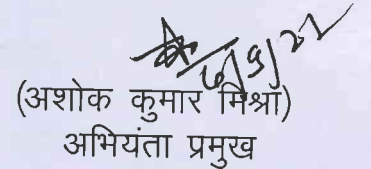 6/9/22
(अशोक कुमार मिश्रा)
अभियंता प्रमुख